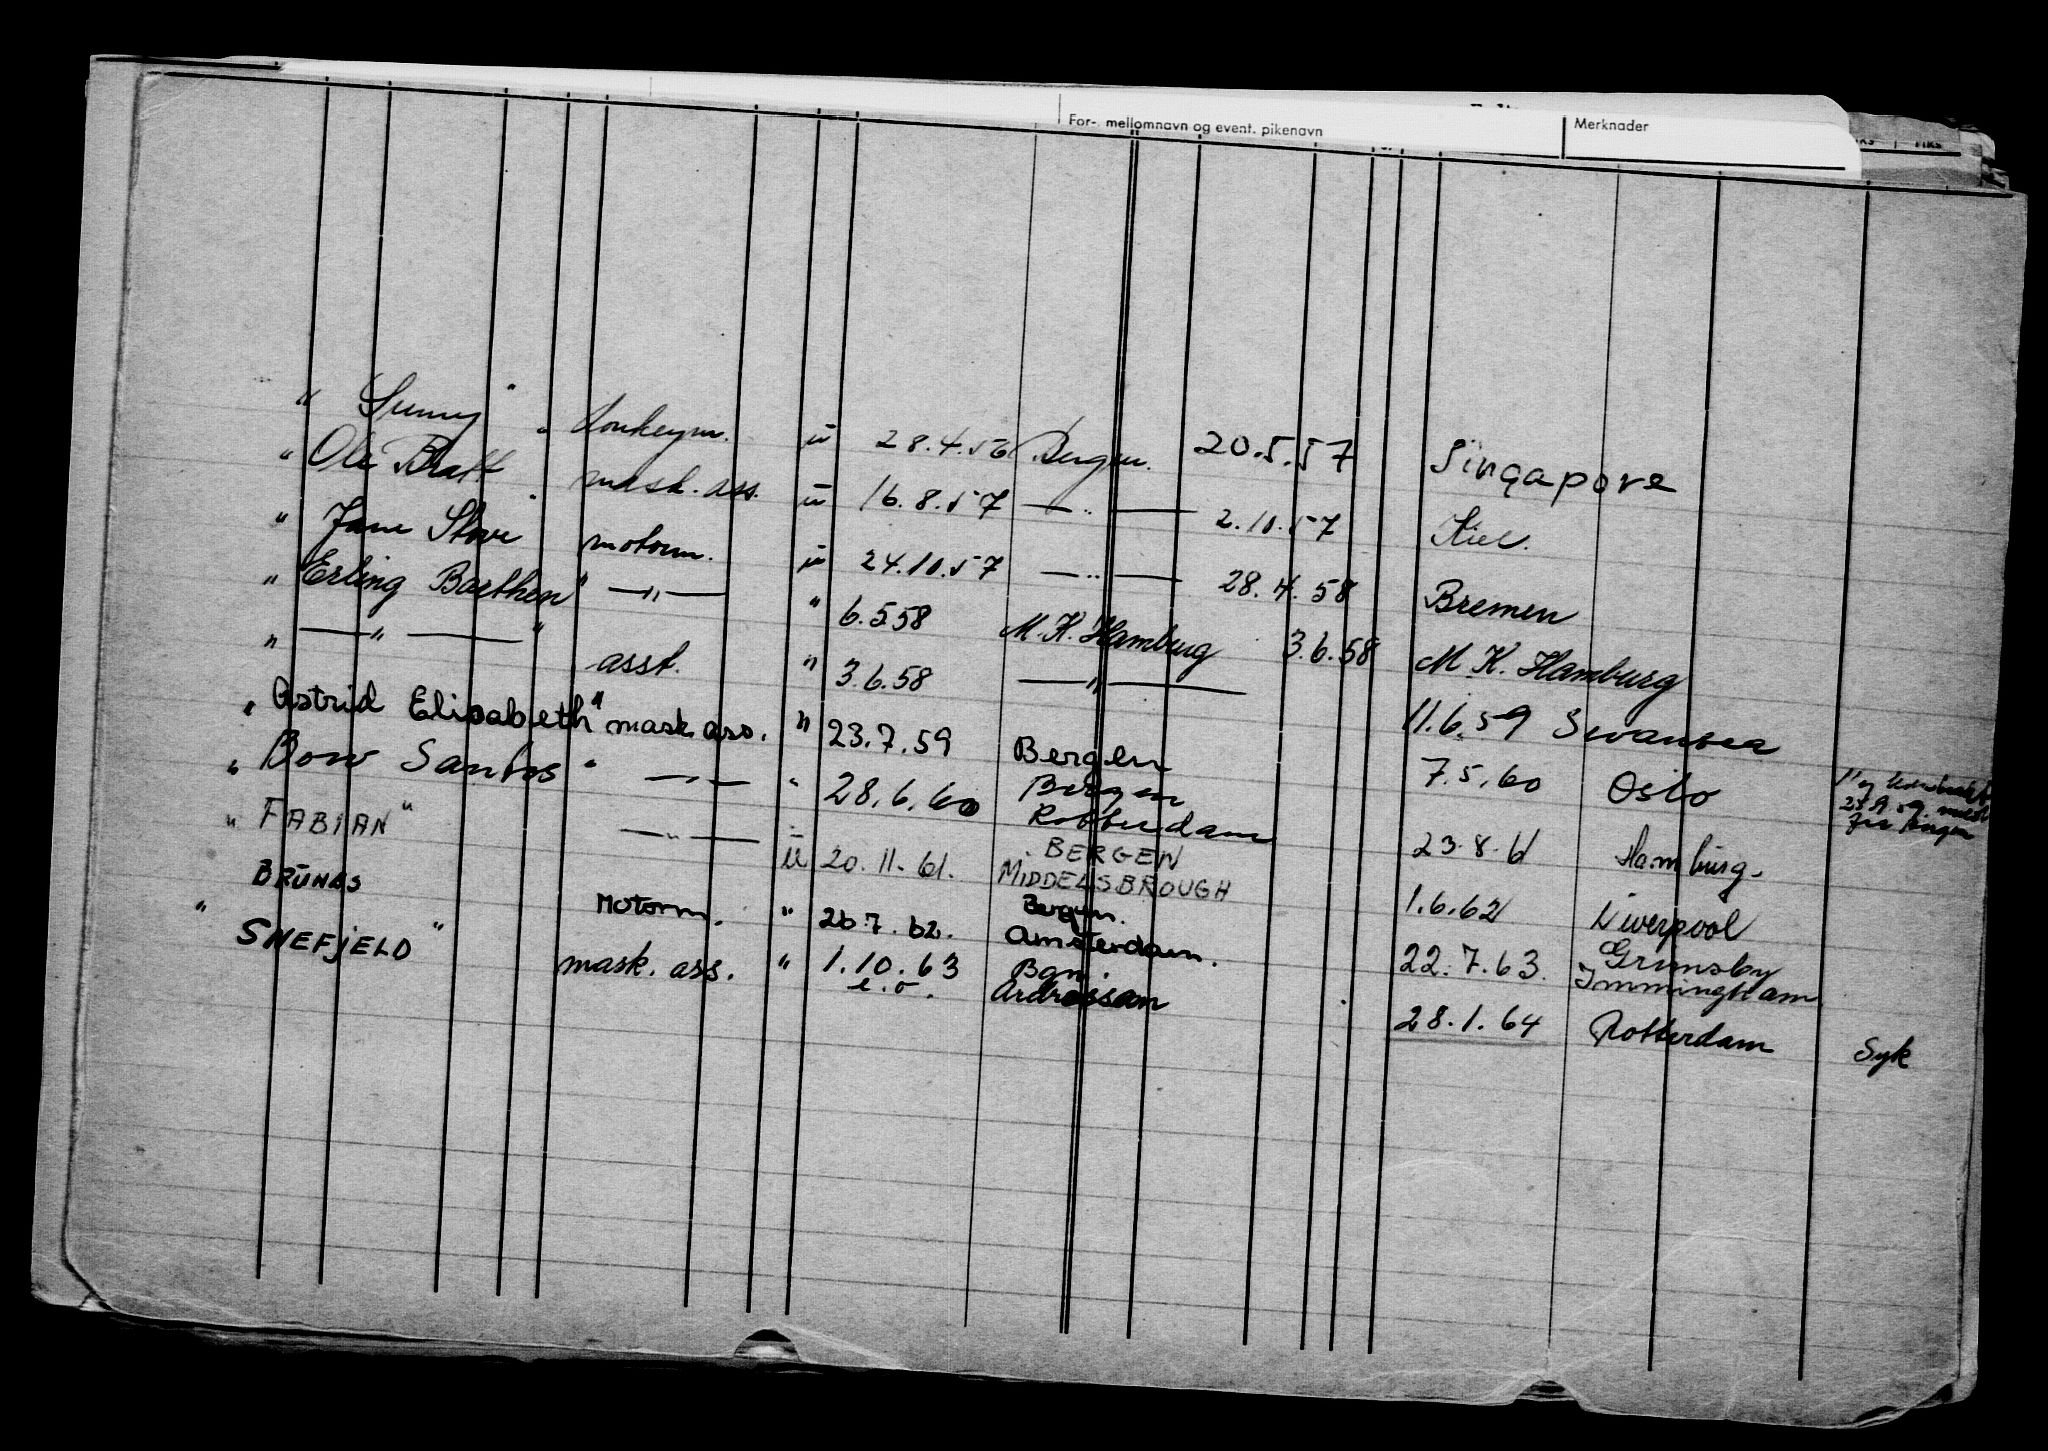 For-, mellomnavn og event. pikenavn Merknader
" Sunny " donkeym. " 28.4.56 Bergen. 20.5.57 Singapore
" Ole Bratt " mask. ass. " 16.8.57 —"— 2.10.57 Kiel.
" Jane Stove " motorm. " 24.10.57 —"— 28.4.58 Bremen
" Erling Borthen " —"— " 6.5.58 M.K. Hamburg 3.6.58 M.K. Hamburg
" —"— " asst. " 3.6.58 —"— 11.6.59 Swansea
" Astrid Elisabeth " mask. ass. " 23.7.59 Bergen 7.5.60 Oslo
" Bow Santos " —"— " 28.6.60 Bergen Rotterdam 23.8.61 Hamburg.
" FABIAN " —"— " 20.11.61. BERGEN MIDDELSBROUGH 1.6.62 Liverpool
BRUNES Motorm. " 26.7.62. Bergen. Amsterdam. 22.7.63. Grimsby Immingham
" SNEFJELD " mask. ass. " 1.10.63 e.o. Bgn. Ardrossan 28.1.64 Rotterdam Syk